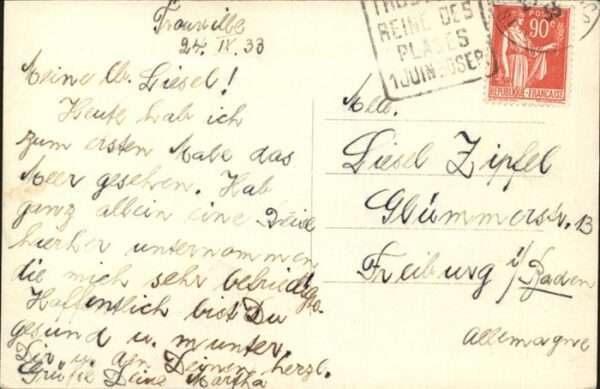 Trouville
24. IV. 33
Meine lb. Liesel!
Heute hab ich
zum ersten Male das
Meer gesehen. Hab
ganz allein eine Reise
hierher unternommen
die mich sehr befriedigte.
Hoffentlich bist Du
gesund u. munter.
Dir u. den Deinen herzl.
Grüße Deine Martha
REINE DES
PLAGES
1 JUIN
90c
POSTES
REPUBLIQUE-FRANÇAISE
Liesel Zipfel
Glümmerstr. 13
Freiburg i/Baden
Allemagne